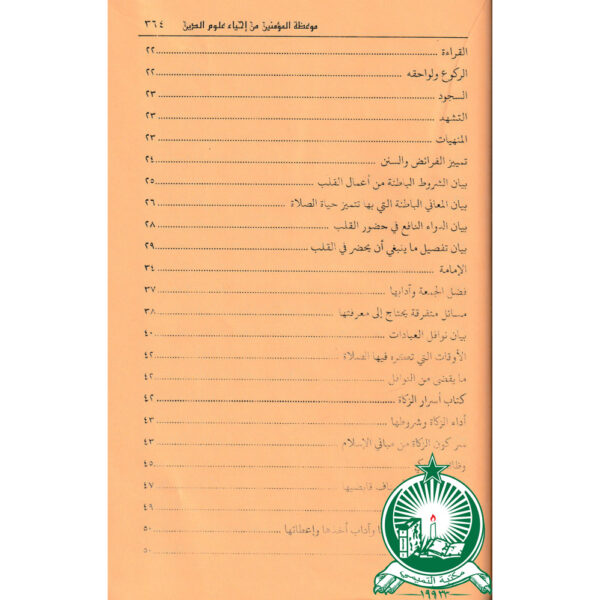 موعظة المؤمنين من إحياء علوم الدين ٣٦٤
القراءة ٢٢
الركوع ولواحقه ٢٢
السجود ٢٣
التشهد ٢٣
المنهيات ٢٣
تمييز الفرائض والسنن ٢٤
بيان الشروط الباطنة من أعمال القلب ٢٥
بيان المعاني الباطنة التي بها تتميز حياة الصلاة ٢٦
بيان الدواء النافع في حضور القلب ٢٨
بيان تفصيل ما ينبغي أن يحضر في القلب ٢٩
الإمامة ٣٤
فضل الجمعة وآدابها ٣٧
مسائل متفرقة يحتاج إلى معرفتها ٣٨
بيان نوافل العبادات ٤٠
الأوقات التي تكره فيها الصلاة ٤٢
ما يقضى من النوافل ٤٢
كتاب أسرار الزكاة ٤٢
أداء الزكاة وشروطها ٤٣
سر كون الزكاة من مباني الإسلام ٤٣
٤٥
قابضيها ٤٧
٤٩
وآداب أخذها وإعطائها ٥٠
٥٠
مكتبة